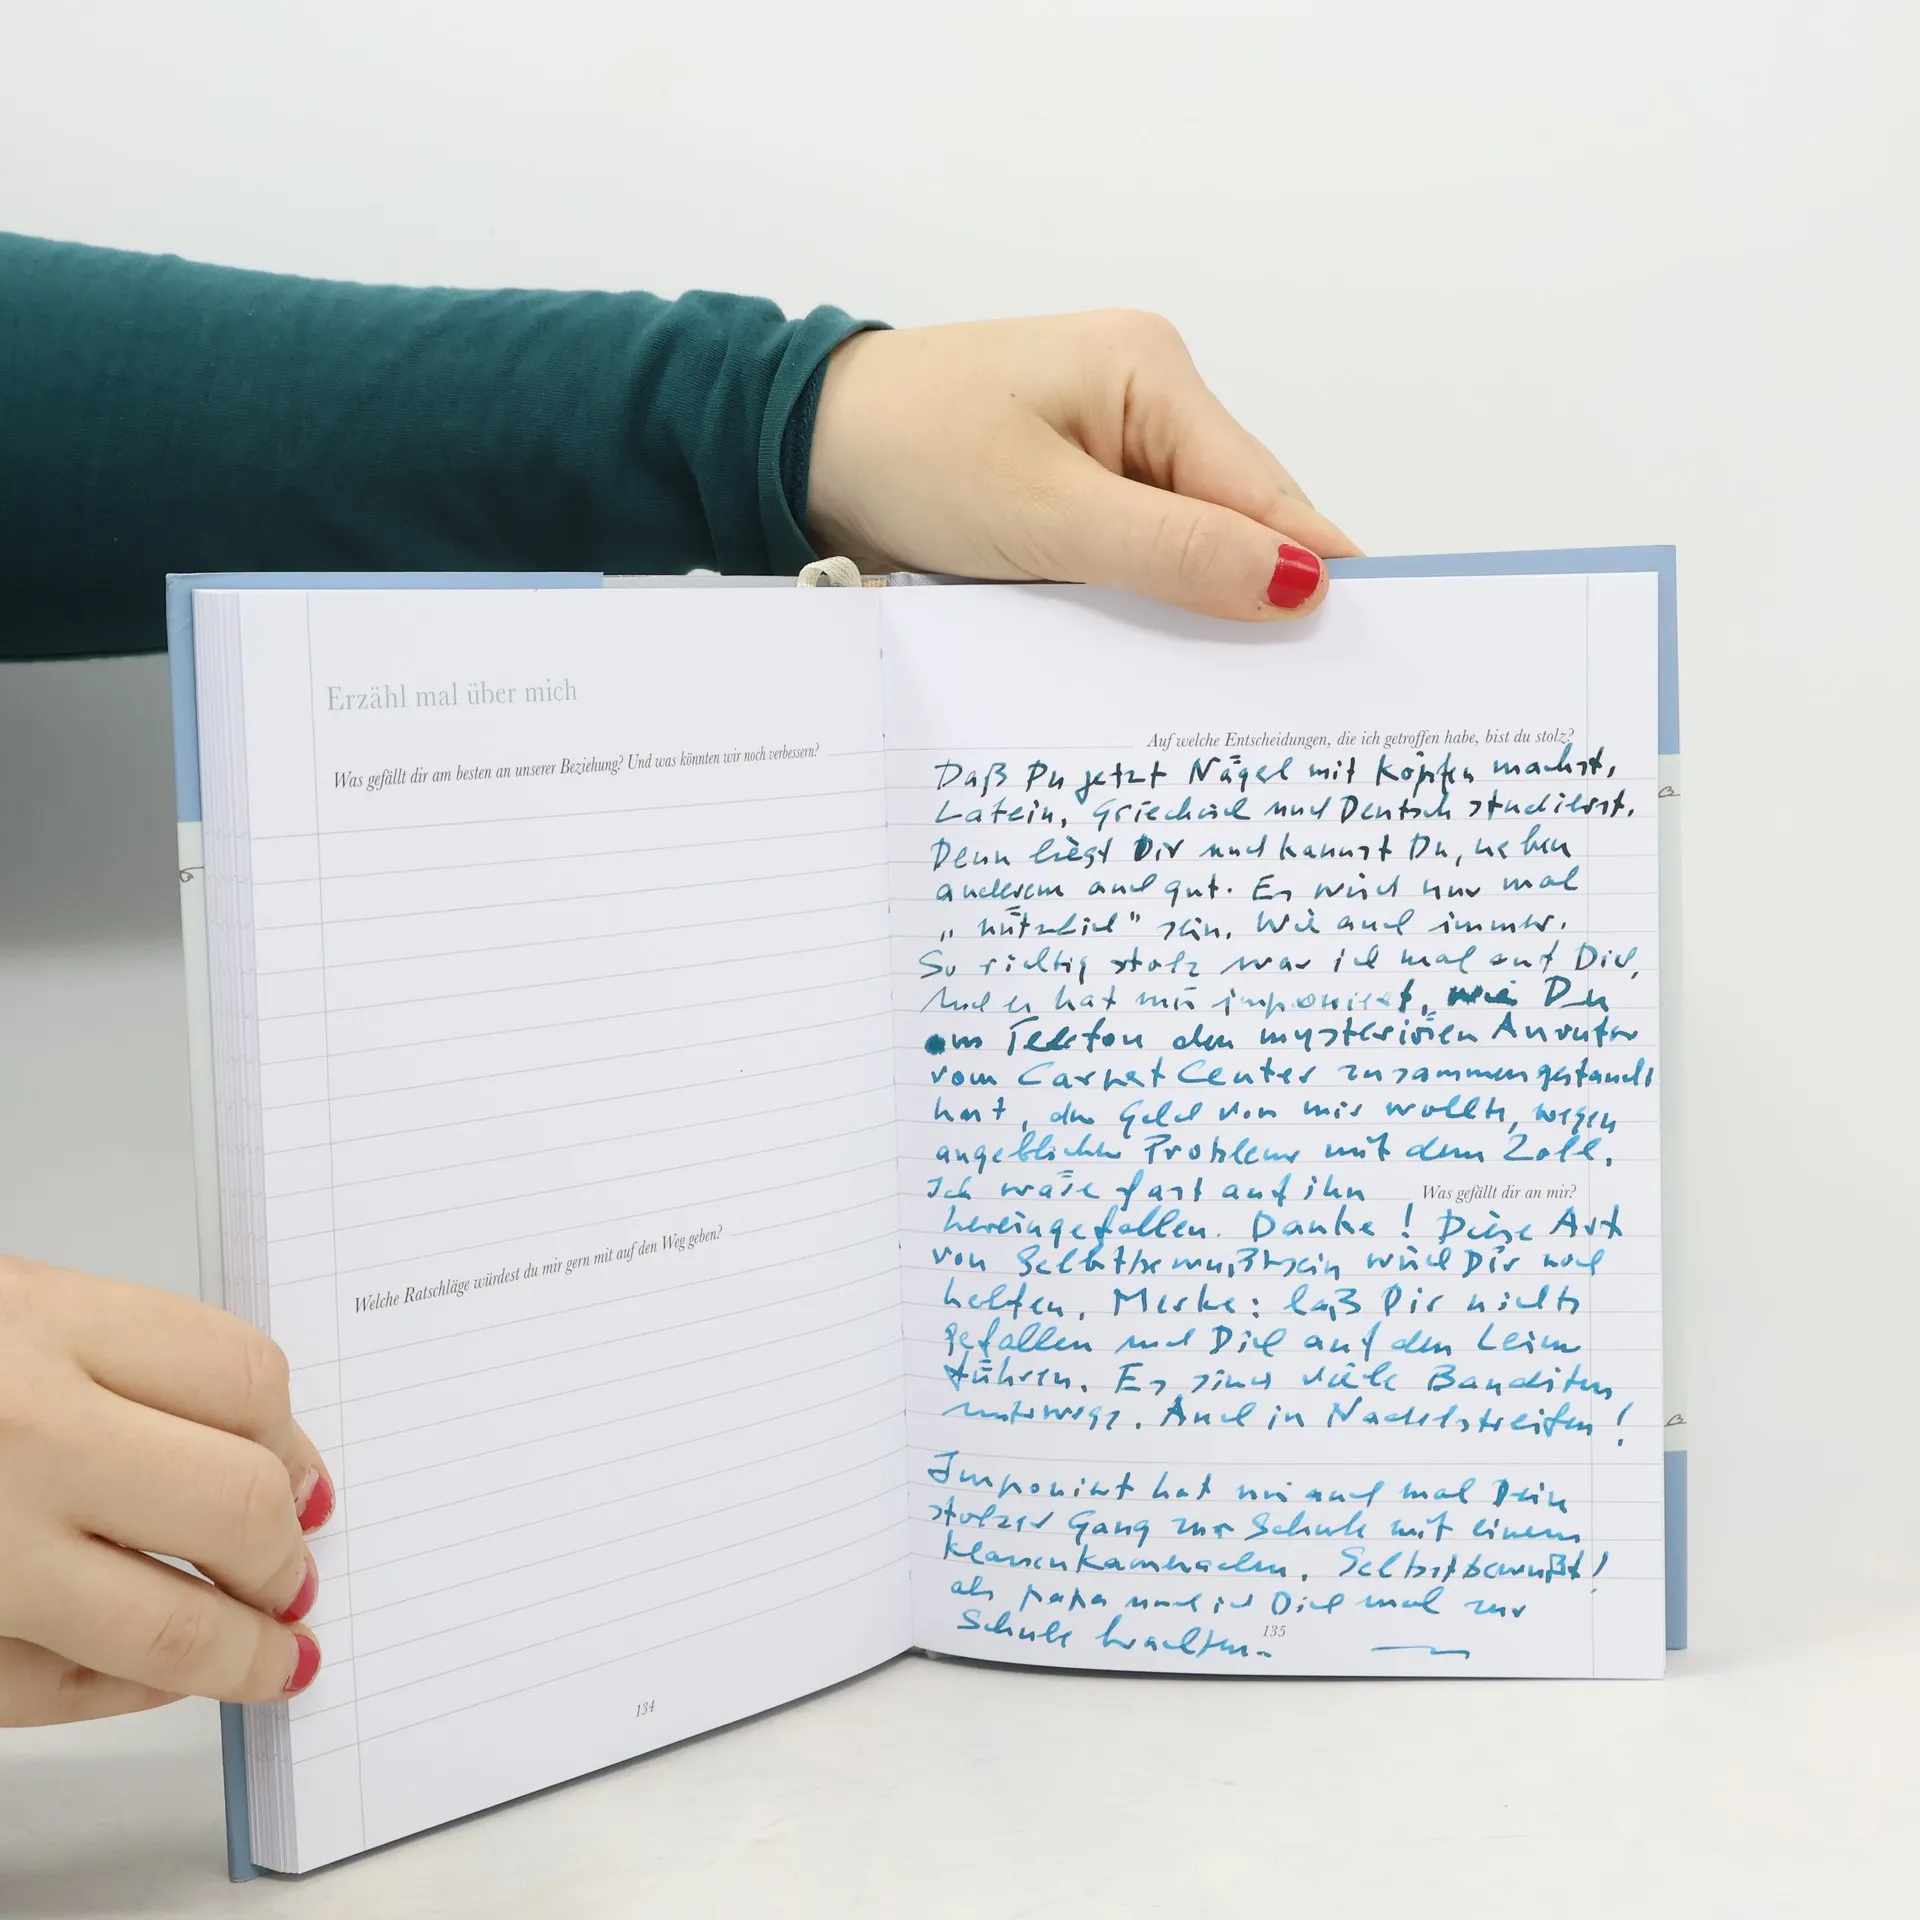 Erzähl mal über mich
Was gefällt dir am besten an unserer Beziehung? Und was könnten wir noch verbessern?
Welche Ratschläge würdest du mir gern mit auf den Weg geben?
134
Auf welche Entscheidungen, die ich getroffen habe, bist du stolz?
Daß Du jetzt Nägel mit Köpfen machst,
Latein, Griechisch und Deutsch studierst.
Denn liegt Dir und kannst Du, neben
anderem auch gut. Es wird nur mal
„nützlich" sein. Wie auch immer.
So richtig stolz war ich mal auf Dich,
und es hat mir imponiert, wie Du
am Telefon den mysteriösen Anrufer
vom Carpet Center zusammengestaucht
hast, der Geld von mir wollte, wegen
angeblicher Probleme mit dem Zoll.
Ich wäre fast auf ihn
Was gefällt dir an mir?
hereingefallen. Danke! Diese Art
von Selbstbewußtsein wird Dir noch
helfen. Merke: laß Dir nichts
gefallen und Dich auf den Leim
führen. Es sind viele Banditen
unterwegs. Auch in Nadelstreifen!
Imponiert hat mir auch mal Dein
stolzer Gang zur Schule mit einem
Klassenkameraden. Selbstbewußt!
als Papa und ich Dich mal zur
Schule brachten.
135